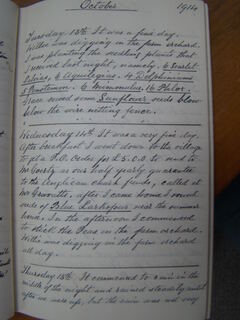 October 1914
Tuesday 13th It was a fine day.
Willie was digging in the farm orchard.
I was planting the seedling plants that
I received last night, namely, 6 Scarlet
Lobelias, 6 Aquilegias, 10 Delphiniums
5 Penstemon, 6 Mimulus, 16 Phlox.
Grace sowed some Sunflower seeds
below the wire netting fence.
Wednesday 14th It was a very fine day.
After breakfast I went down to the village
to get a P.O. Order for £5.0.0 to send to
Mr as our half yearly guarantee
to the Anglican church funds, called at
after I came home I sowed
seeds of Blue Larkspur near the summer
house. In the afternoon I commenced
to stick the Peas in the farm orchard.
Willie was digging in the farm orchard
all day.
Thursday 15th It commenced to rain in the
middle of the night and rained steadily until
after we were up, but the rain was not very